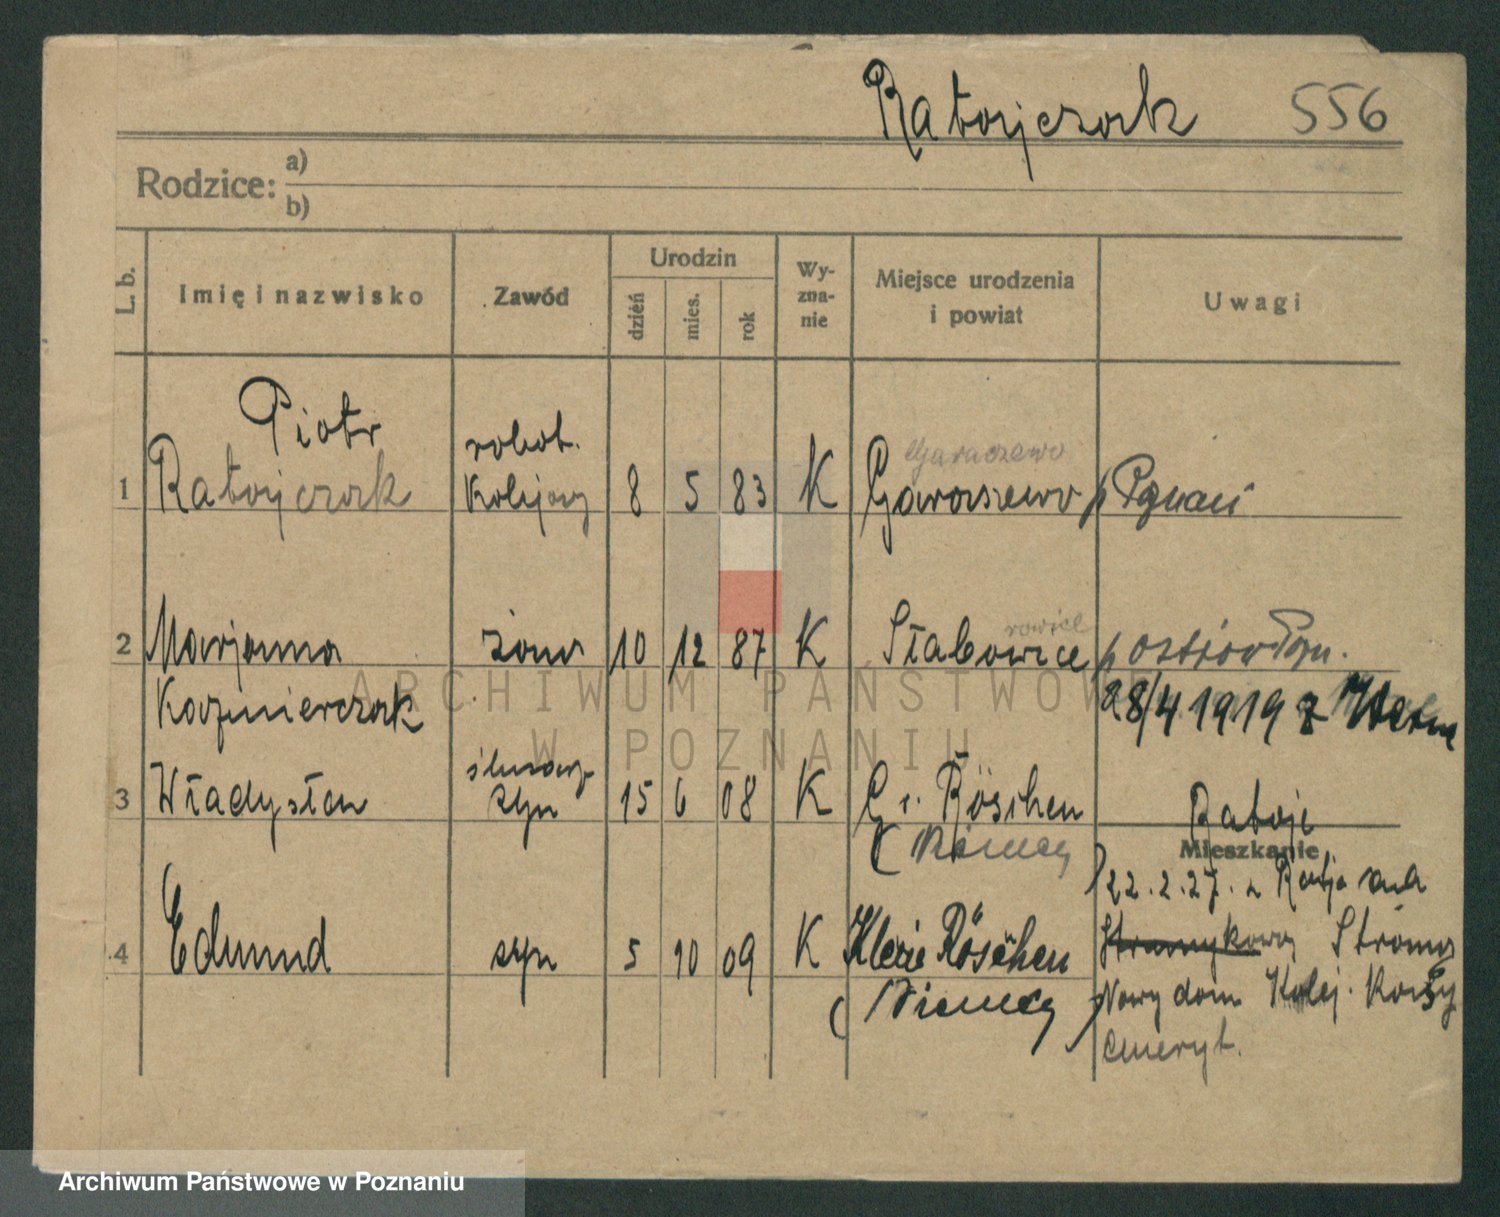 Ratajczak 556
Rodzice: a)
b)
L. b. Imię i nazwisko Zawód Urodzin dzień mies. rok Wy-zna-nie Miejsce urodzenia i powiat Uwagi
Piotr robot. Garaszewo
1 Ratajczak Kolejowy 8 5 83 K Garaszewo p Poznań
2 Marjanna żona 10 12 87 K Słabowice p Ostrów Pozn.
Kaźmierczak 28/4 1919 z Herne
ślusarz
3 Władysław syn 15 6 08 K Gr. Röschen
(Niemcy) Rataje
Mieszkanie
22.2.27. z
4 Edmund syn 5 10 09 K Klein Röschen Stroma
(Niemcy) Nowy dom Kolej.
emeryt.
ARCHIWUM PAŃSTWOWE
W POZNANIU
Archiwum Państwowe w Poznaniu